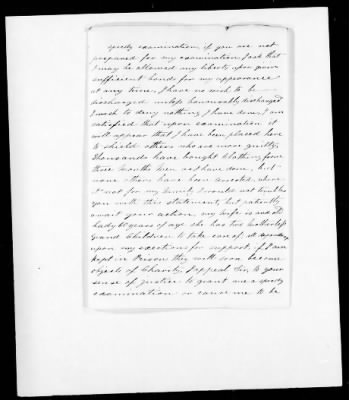 speedy examination, if you are not
prepared for my examination I ask that
I may be allowed my liberty upon given
sufficient bonds for my appearance
at any time. I have no wish to be
discharged unless honourably discharged
I wish to deny nothing I have done, I am
satisfied that upon examination it
will appear that I have been placed here
to shield others who are more guilty,
Thousands have bought Clothing from
three months men, as I have done, but
none others have been arrested, where
it not for my family I would not trouble
you with this statement, but patiently
await your action, my wife is and old
Lady 61 years of age she has two motherless
Grand Children to take care of, all depending
upon my exertions for support, if I am
kept in Prison they will soon become
objects of Charity, I appeal Sir, to your
sense of justice to grant me a speedy
examination or cause me to be